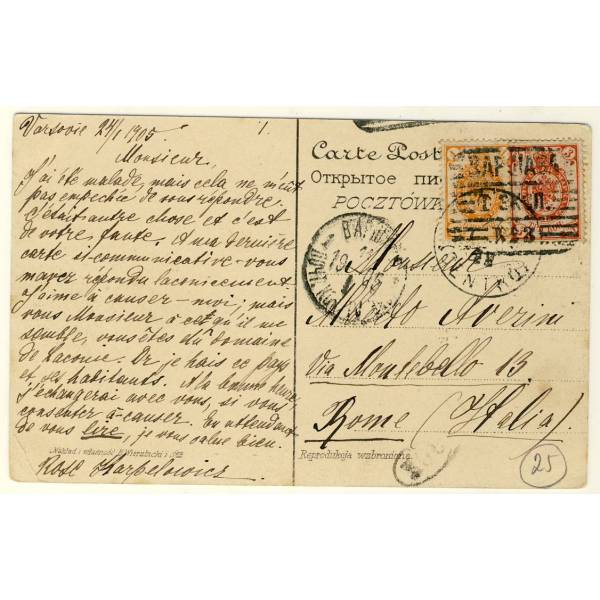 Varsovie 24/I 1905.
1.
Monsieur,
J'ai été malade, mais cela ne m'eut
pas empêchée de vous répondre.
c'était autre chose et c'est
de votre faute. A ma dernière
carte si-communicative-vous
m'avez répondu laconicement
J'aime à causer-moi; mais
vous Monsieur à ce qu'il me
semble, vous êtes du domaine
de Laconie. Or je hais ce pays
et ses habitants. A la bonne heure
j'échangerai avec vous, si vous
consentez à-causer. En attendant
de vous lire, je vous salue bien.
Nakład i własność B. Wierzbicki i S-ka
Rose
Carte Post
Открытое пи
POCZTÓWK
ВАРШАВА
Monsieur
Averini
Via Montebello 13
Rome (Italia).
Reprodukcja wzbroniona.
25